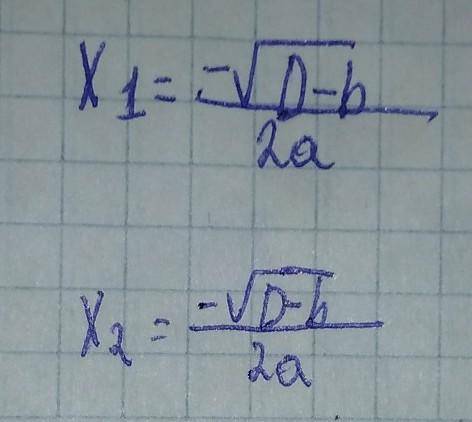 X₁ = -√D-b / 2a
X₂ = -√D-b / 2a